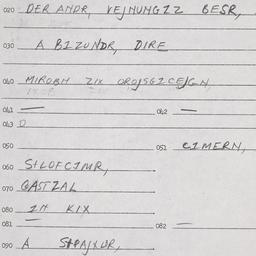 020 DER ANDR, VEJNUNGIZ BESR,
030 A BIZUNDR, DIRE
040 MIROBM ZIX
041 — 042 —
043 0
050 051 CIMERN,
060 SILOFCIMR,
070 GASTZAL
080 IM KIX
081 — 082 —
090 A